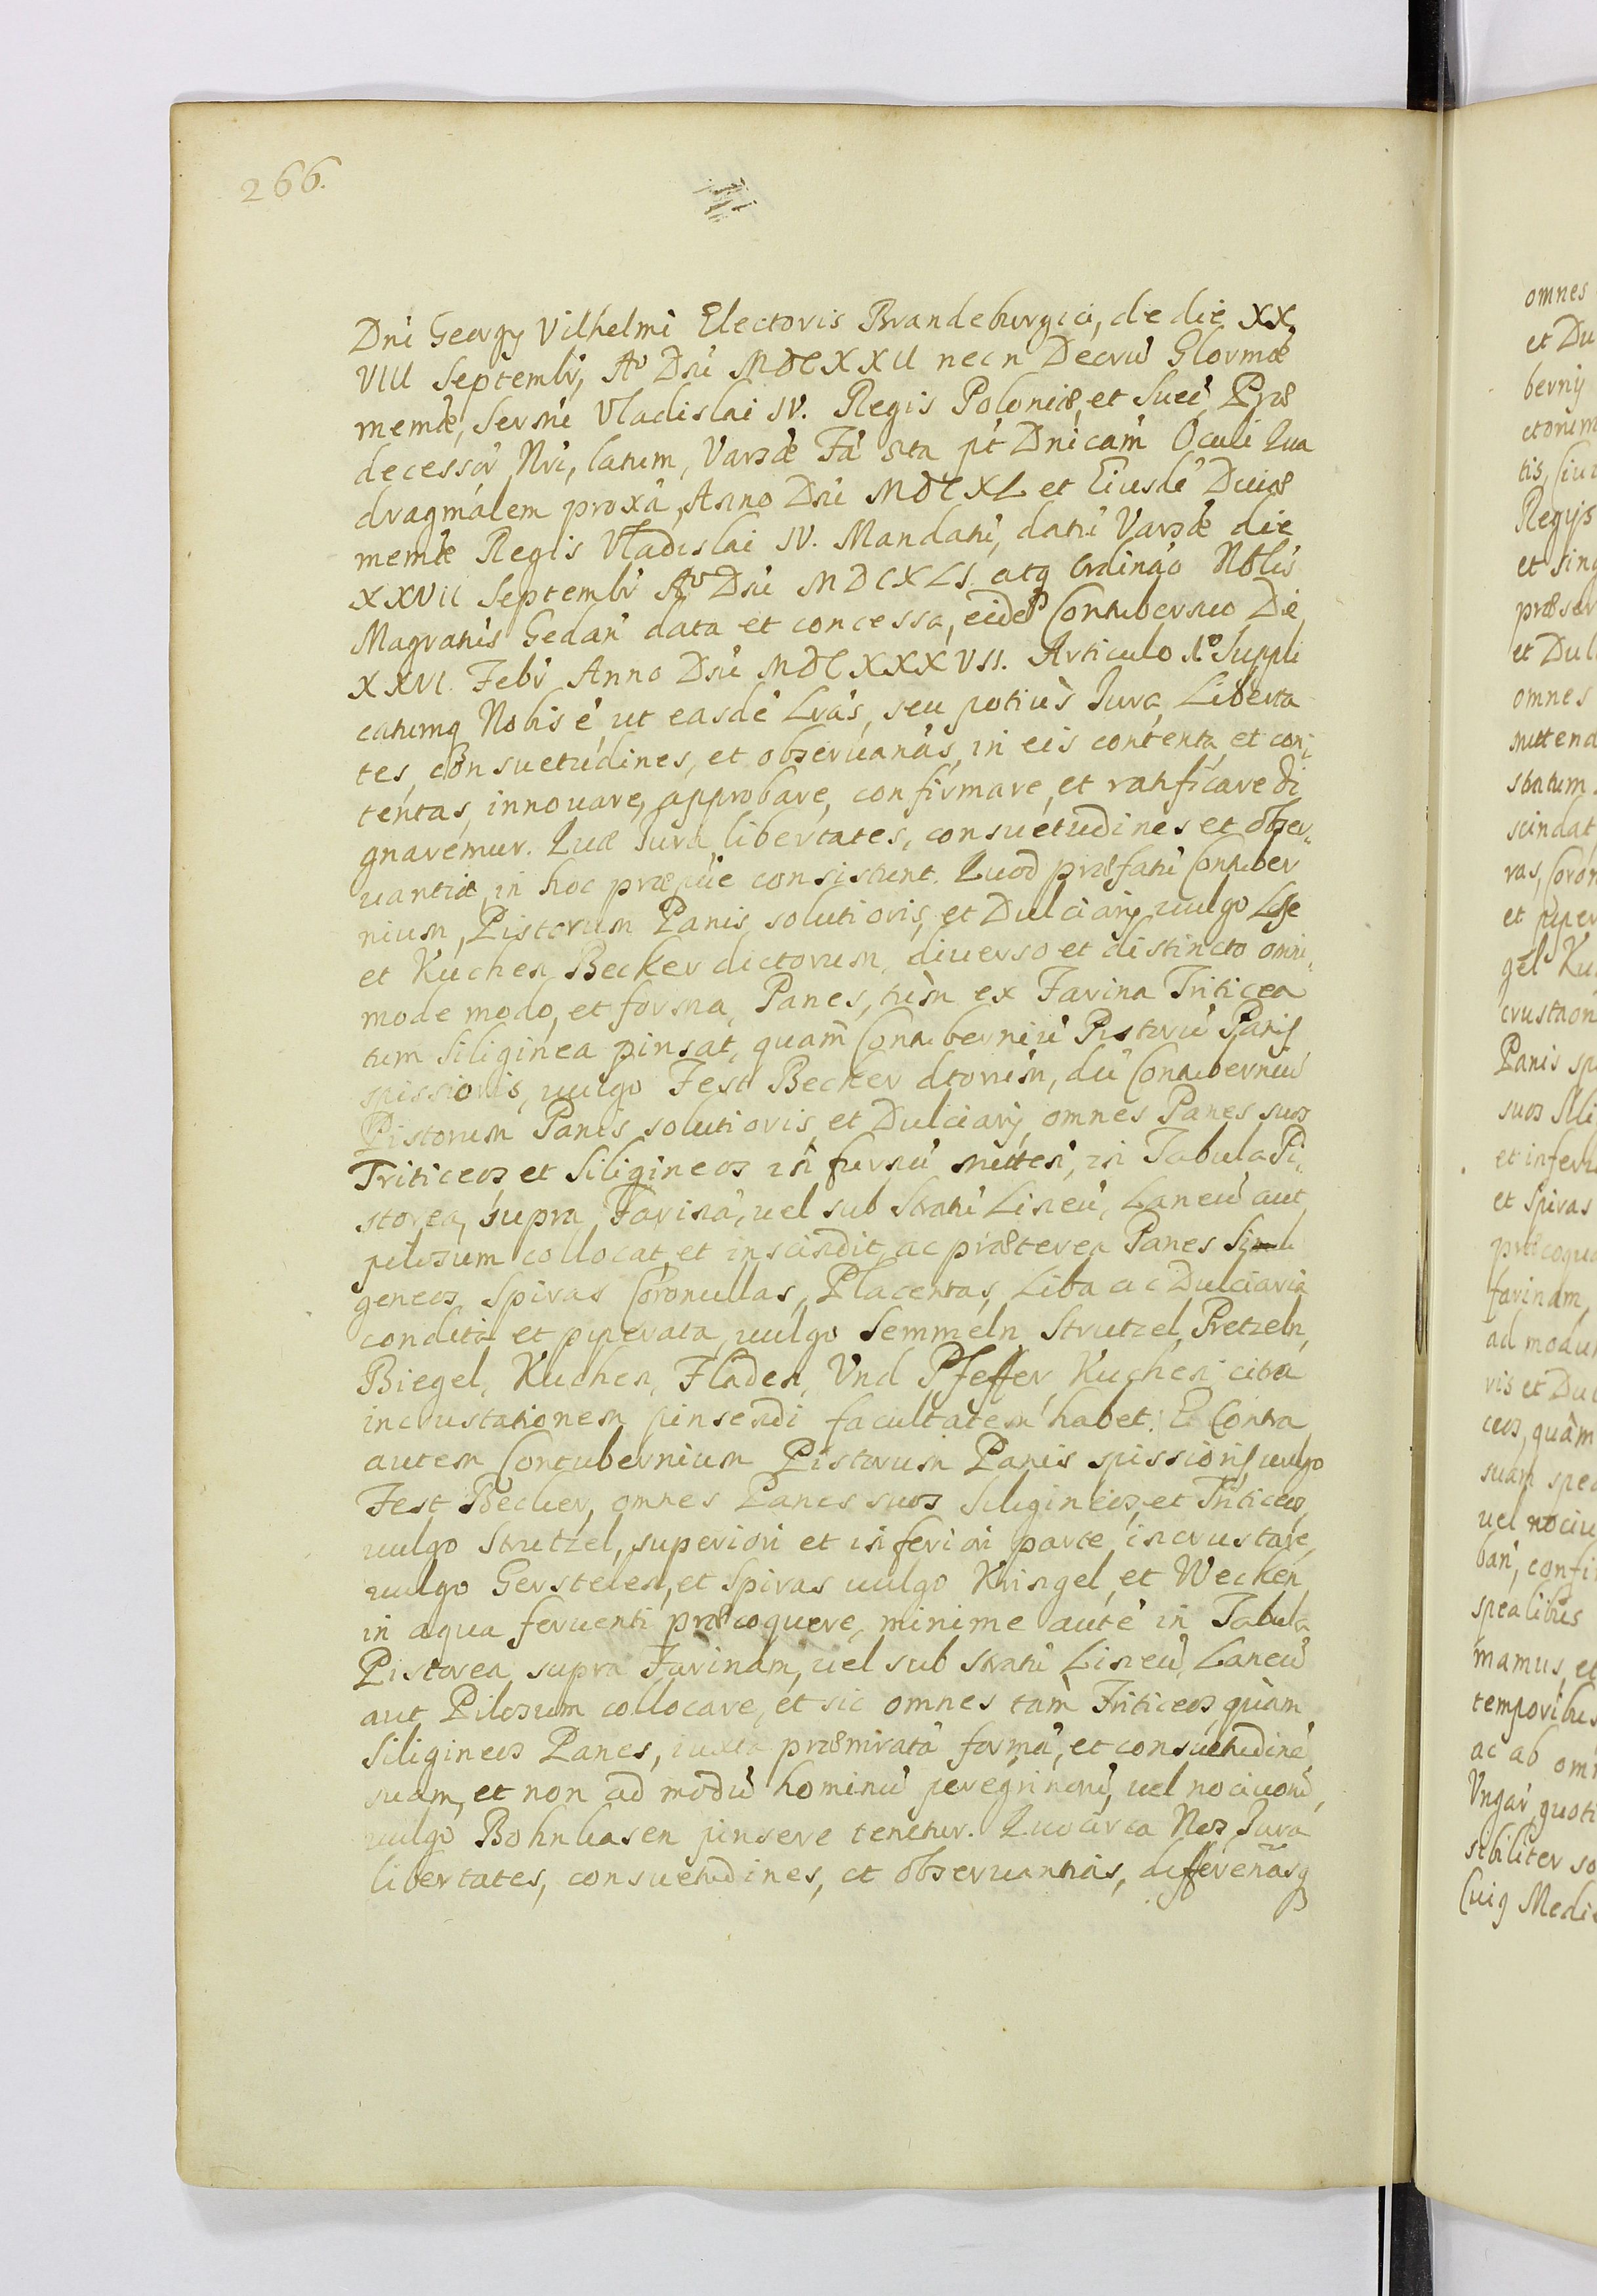 266.
Dni Georgy Vilhelmi Electoris Brandeburgici, de die XX
VIII Septembr, Ao Dni MDCXXII necn Decrũ Glormæ
memæ, Sermi Vladislai IV. Regis Poloniæ, et Sueć, Præ
decessor Nri, latum, Varsæ Fa sta pt Dnicam Oculi Qua
dragmalem proxa, Anno Dni MDCXL et Eiusdẽ Duiæ
memæ Regis Vladislai IV. Mandatũ, datũ Varsæ die
XXVII Septembr Ao Dni MDCXLI. atq Ordinao Nblis
Magratus Gedan data et concessa, eidẽ Contubernio Die
XXVI. Febr Anno Dni MDCXXXVII. Articulo 1o Suppli
catumq Nobis ẽ, ut easdẽ Lras, seu potius Jura, Liberta
tes, consuetudines, et obseruanas, in eis contenta, et con
tentas, innouare, approbare, confirmare, et ratificare di
gnaremur. Quæ Jura, libertates, consuetudines et obser
uantiæ, in hoc præpue consistunt. Quod præfatũ Contuber
nium, Pistorum Panis, solutioris, et Dulciary, uulgo Lose
et Kuchen Becker dictorum, diuerso et distincto omni
mode modo, et forma, Panes, tum ex Farina Triticea
tum Siliginea pinsat, quam Contuberniũ Pistorũ Panis
spissioris, uulgo Fest Becker dtorum, dũ Contuberniũ
Pistorum Panis solutioris, et Dulciarij, omnes Panes suos
Triticeos et Siligineos in furnũ mitten, in Tabula Pi
storea, supra Farinã, uel sub Stratũ Lineũ, Laneũ aut
pilosum collocat, et inscindit, ac præterea Panes Sili
geneos, Spiras Coronullas, Placentas, Liba ac Dulciaria
condita et piperata, uulgo Semmeln, Strutzel, Pretzeln,
Biegel, Kuchen, Fladen, Vnd Pfeffer Kuchen citra
incrustationem pinsendi facultatem habet. E Contra
autem Contubernium Pistorum Panis spissioris, uulgo
Fest Becker, omnes Panes suos Siligineos, et Triticeos,
uulgo Strutzel, superiori et inferiori parte, incrustare,
uulgo Gerstelen, et Spiras uulgo Kringel, et Wecken
in aqua feruenti præcoquere, minime autẽ in Tabula
Pistorea, supra Farinam, uel sub Stratũ Lineũ, Laneũ
aut Pilosum collocare, et sic omnes tam Triticeos quam
Siligineos Panes, iuxta præmiratã formã, et consuetudinẽ
suam, et non ad modũ hominũ peregrinorũ, uel nociuorũ,
uulgo Bohnhasen pinsere tenetur. Quocirca Nos Jura
libertates, consuetudines, et obseruantias, differenasq
omnes
et Du
bernij
ctorum
Regijs
et sing
præser
et Dul
omnes
mittend
stratum
scindat
ras, Coron
et piper
gel Ku
crustaon
Panis sp
suos Sili
et inferi
et Spiras
præcoque
farinam,
ad modu
ris et Dul
ceos, quàm
suam spec
uel nociu
ban, confi
spealibus
mamus, et
temporibus
ac ab omn
Vngar quoti
stbiliter so
Cuiq Medie